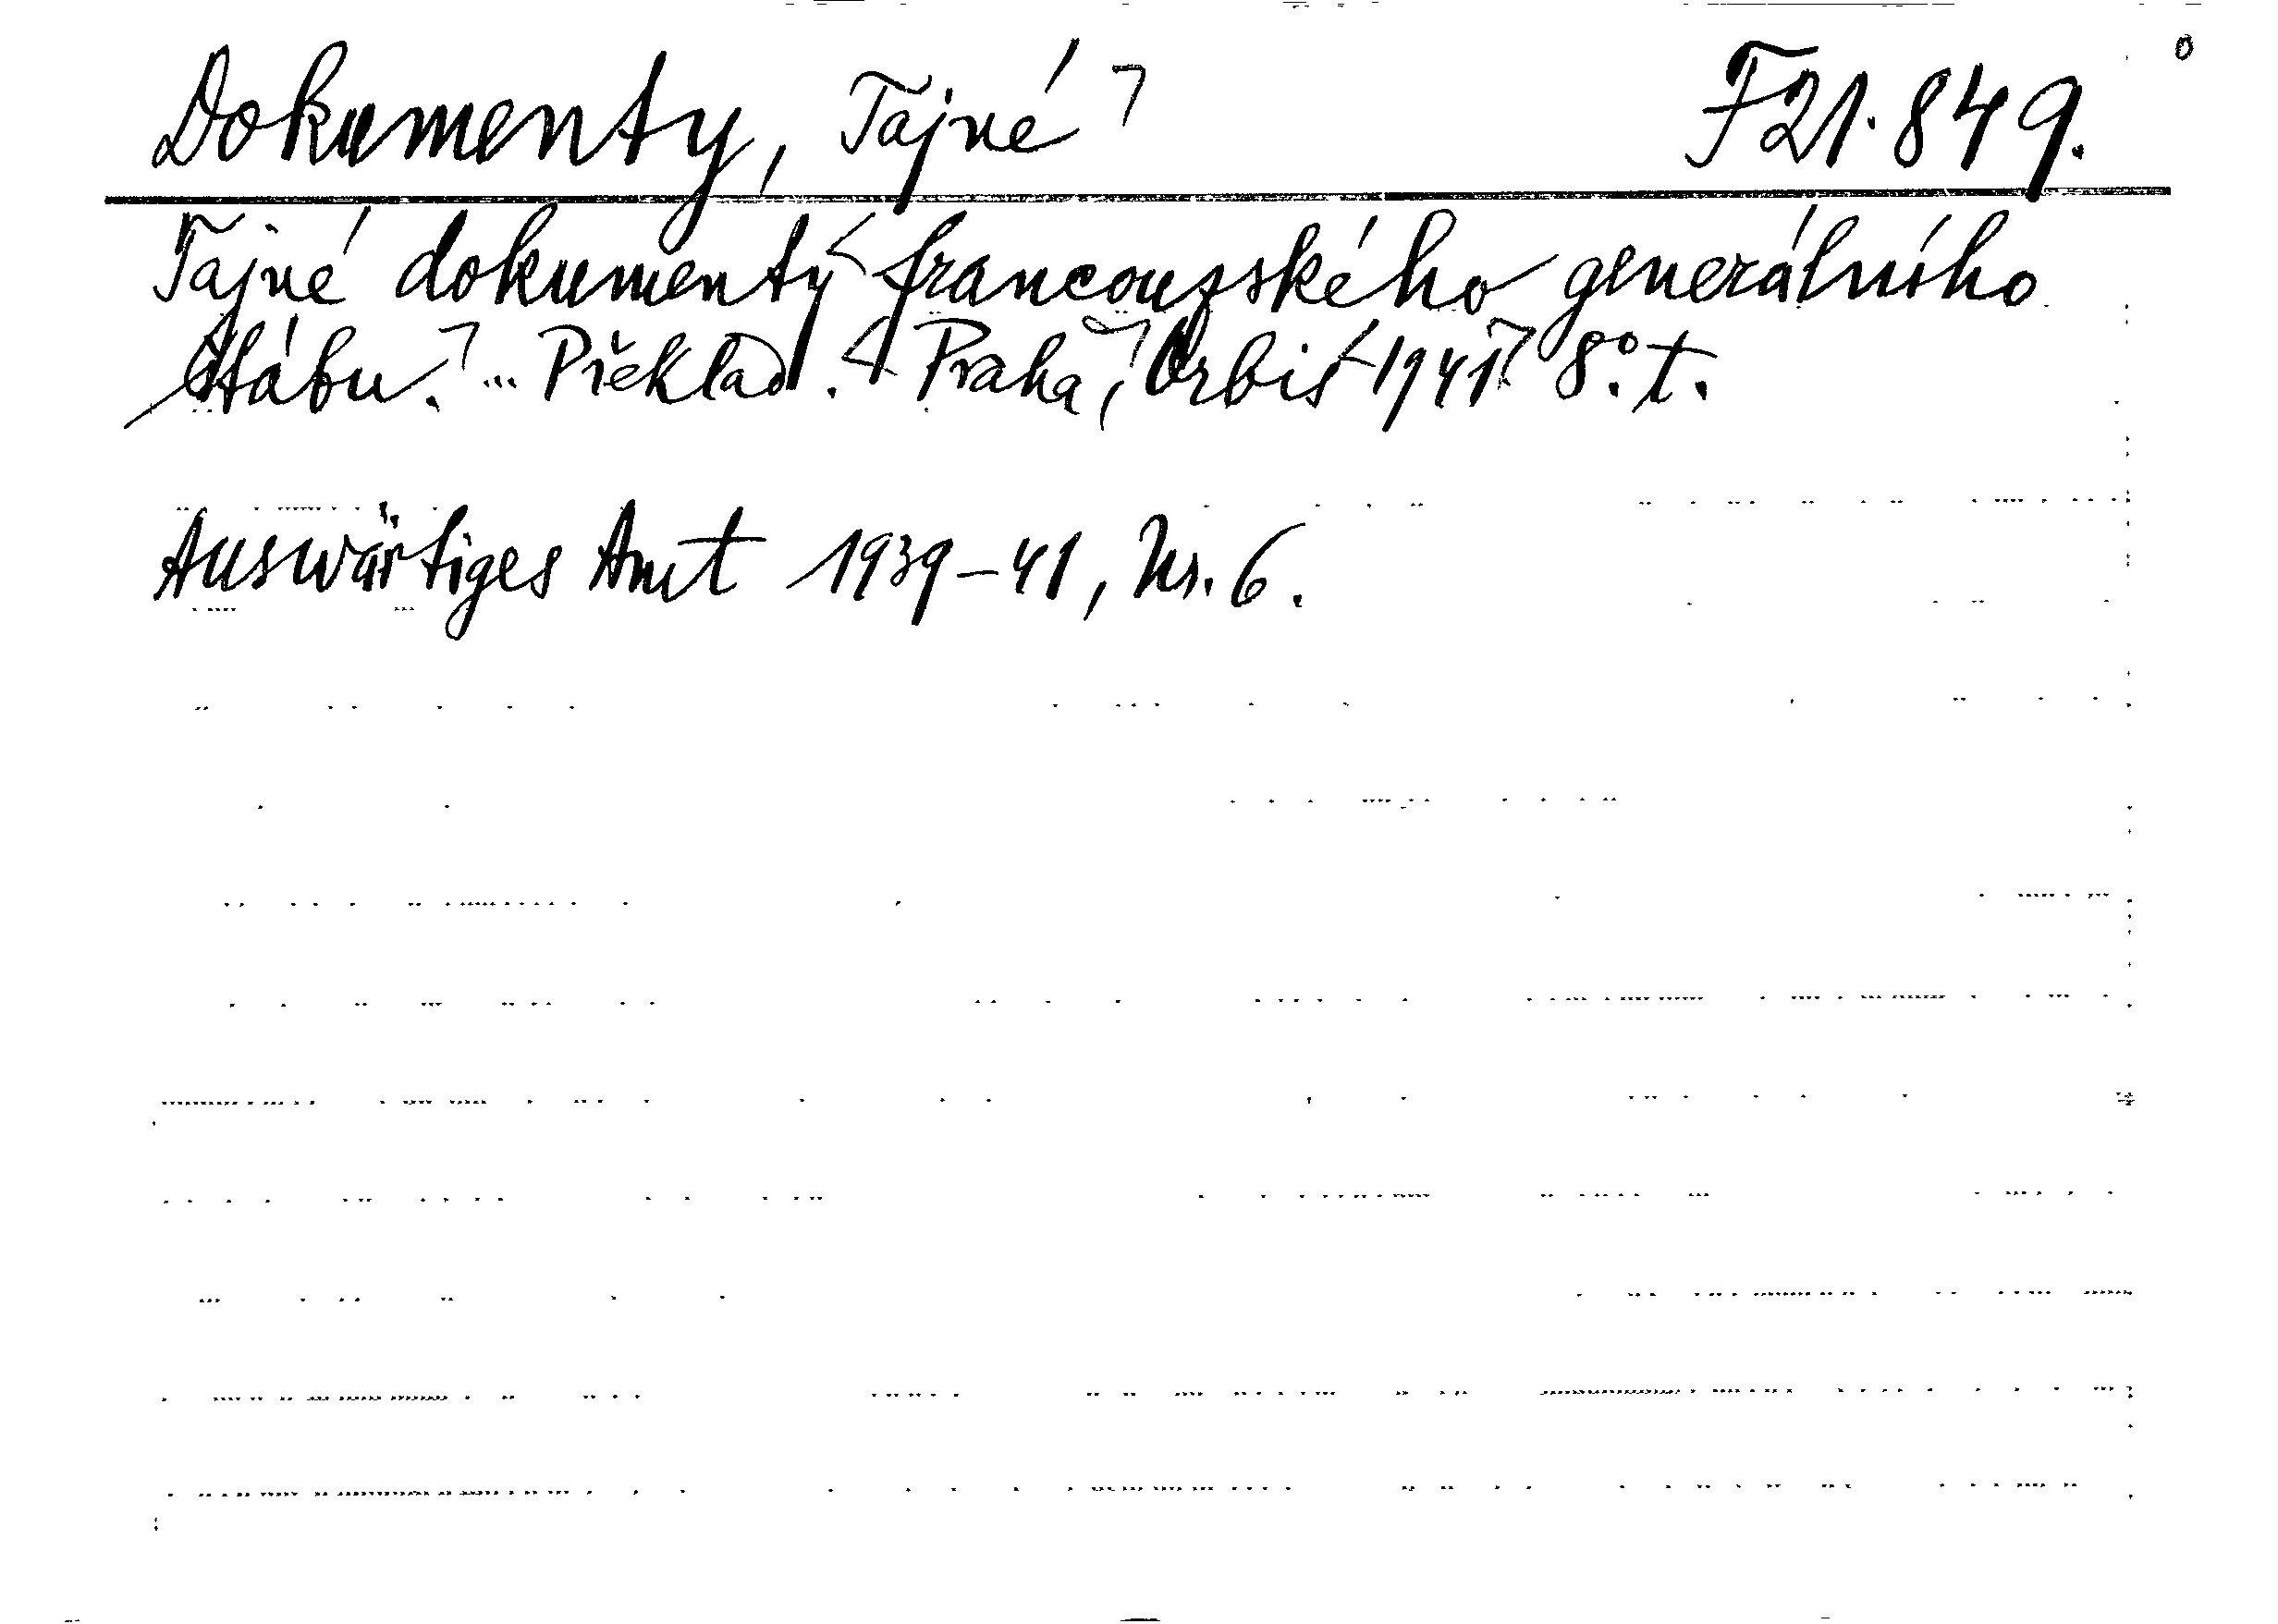 Dokumenty, Tajné ⌉ F 21.849.
Tajné dokumenty < francouzského generálního
štábu. ⌉ ... Překlad. < Praha, ⌉ Orbis < 1941. ⌉ 8.° t.
Auswärtiges Amt 1939-41, Nr. 6.